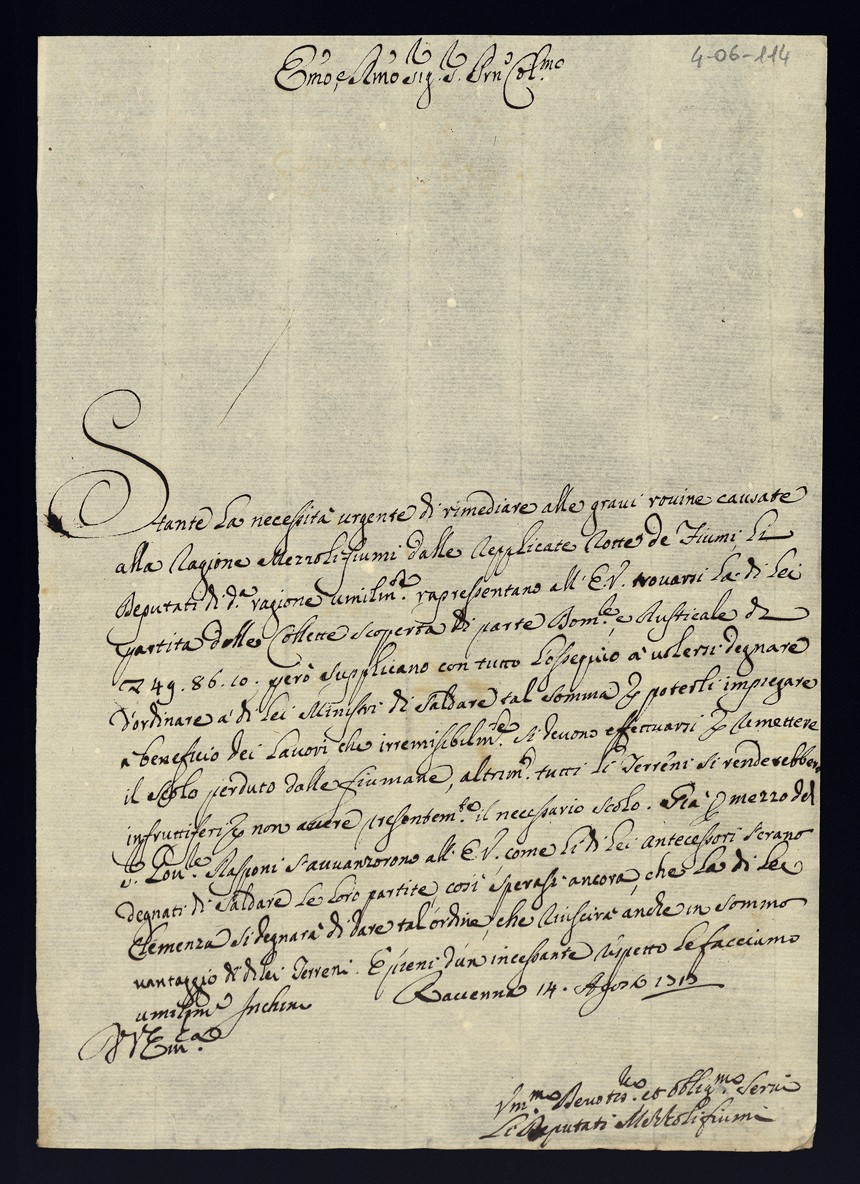 4-06-114
Emo, e Rmo Sig. S. Prn Col.mo
Stante La necessità urgente di rimediare alle graui rouine causate
alla Ragione Mezzolifiumi dalle Repplicate Rotte de Fiumi Li
Deputati di d.a ragione umilm.te rapresentano all' E.V. trouarsi La di Lei
partita delle Collette scoperta di parte Dom.le, e Rusticale di
49. 86. 10. però supplicano con tutto L'ossequio à uolersi degnare
d'ordinare a di Lei Ministri di Saldare tal somma p poterli impiegare
a beneficio dei Lauori che irremisibilm.te si deuono effettuarsi p Remettere
il Scolo perduto dalle fiumane, altrim.ti tutti Li Terreni si renderebbero
infruttiferi p non auere presentem.te il necessario scolo. Già p mezzo del
S. Rasponi s'auuanzorono all' E.V., come Li di Lei Antecessori s'erano
degnati di Saldare Le Loro partite così sperasi ancora, che La di Lei
Clemenza si degnarà di dare tal'ordine, che Riuscirà anche in sommo
uantaggio de di lei Terreni. E pieni d'un incessante Rispetto Le facciamo
umilissime Inchini Rauenna 14. Agosto 1717
D V. Em.a
Vm.mo Deuotis.mo et oblig.mo Serui
Li Deputati Mezzolifiumi